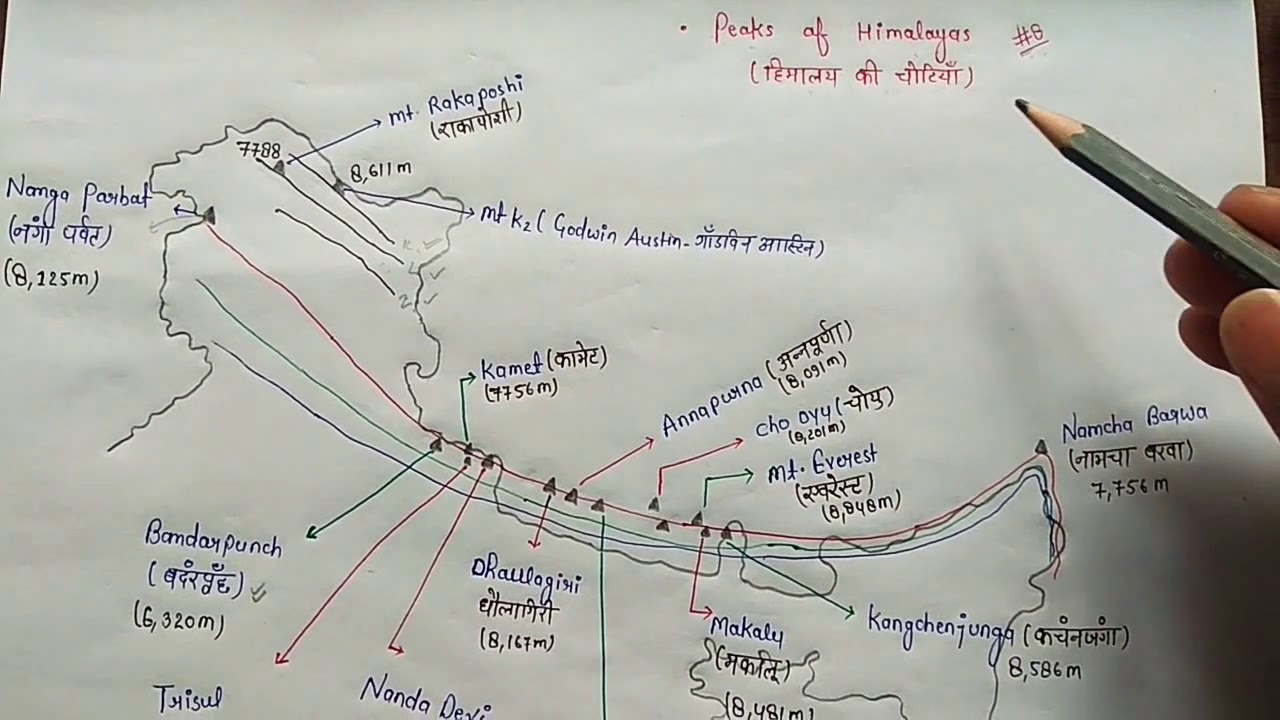 • Peaks of Himalayas #8
(हिमालय की चोटियाँ)
mt. Rakaposhi
(राकापोशी)
7788
8,611m
mt K2 ( Godwin Austin - गॉडविन आस्टिन)
Nanga Parbat
(नंगा पर्वत)
(8,125m)
K
L
Z
Kamet (कामेट)
(7756m)
Annapurna (अन्नपूर्णा)
(8,091m)
Cho oyu (चोयु)
(8,201m)
mt. Everest
(एवरेस्ट)
(8,848m)
Namcha Barwa
(नामचा बरवा)
7,756m
Bandarpunch
(बदंरपूँछ)
(6,320m)
Dhaulagiri
धौलागिरी
(8,167m)
Makalu
(मकालू)
(8,481m)
Kangchenjunga (कचंनजंगा)
8,586m
Trisul
Nanda Devi